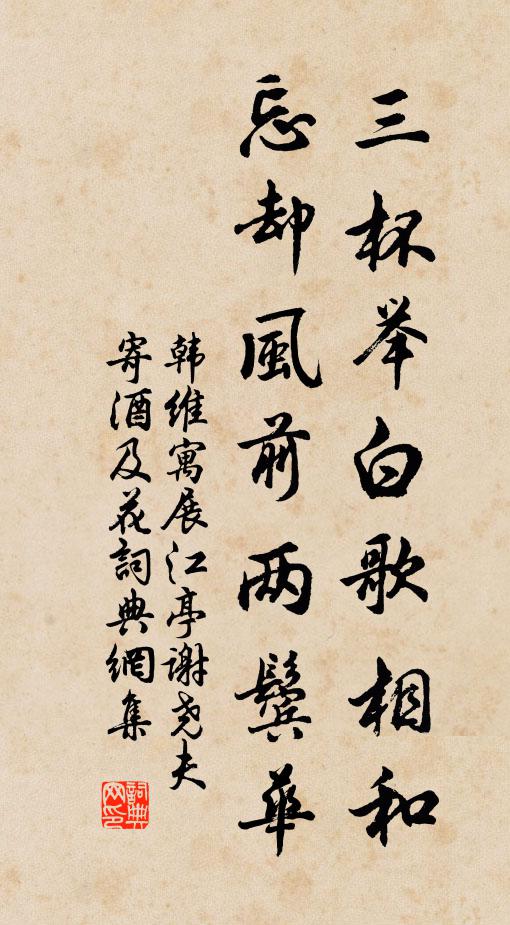 三杯举白歌相和
忘却風前两鬓華
韩维寓展江亭谢尧夫
寄酒及花詞典網集
詞典网印